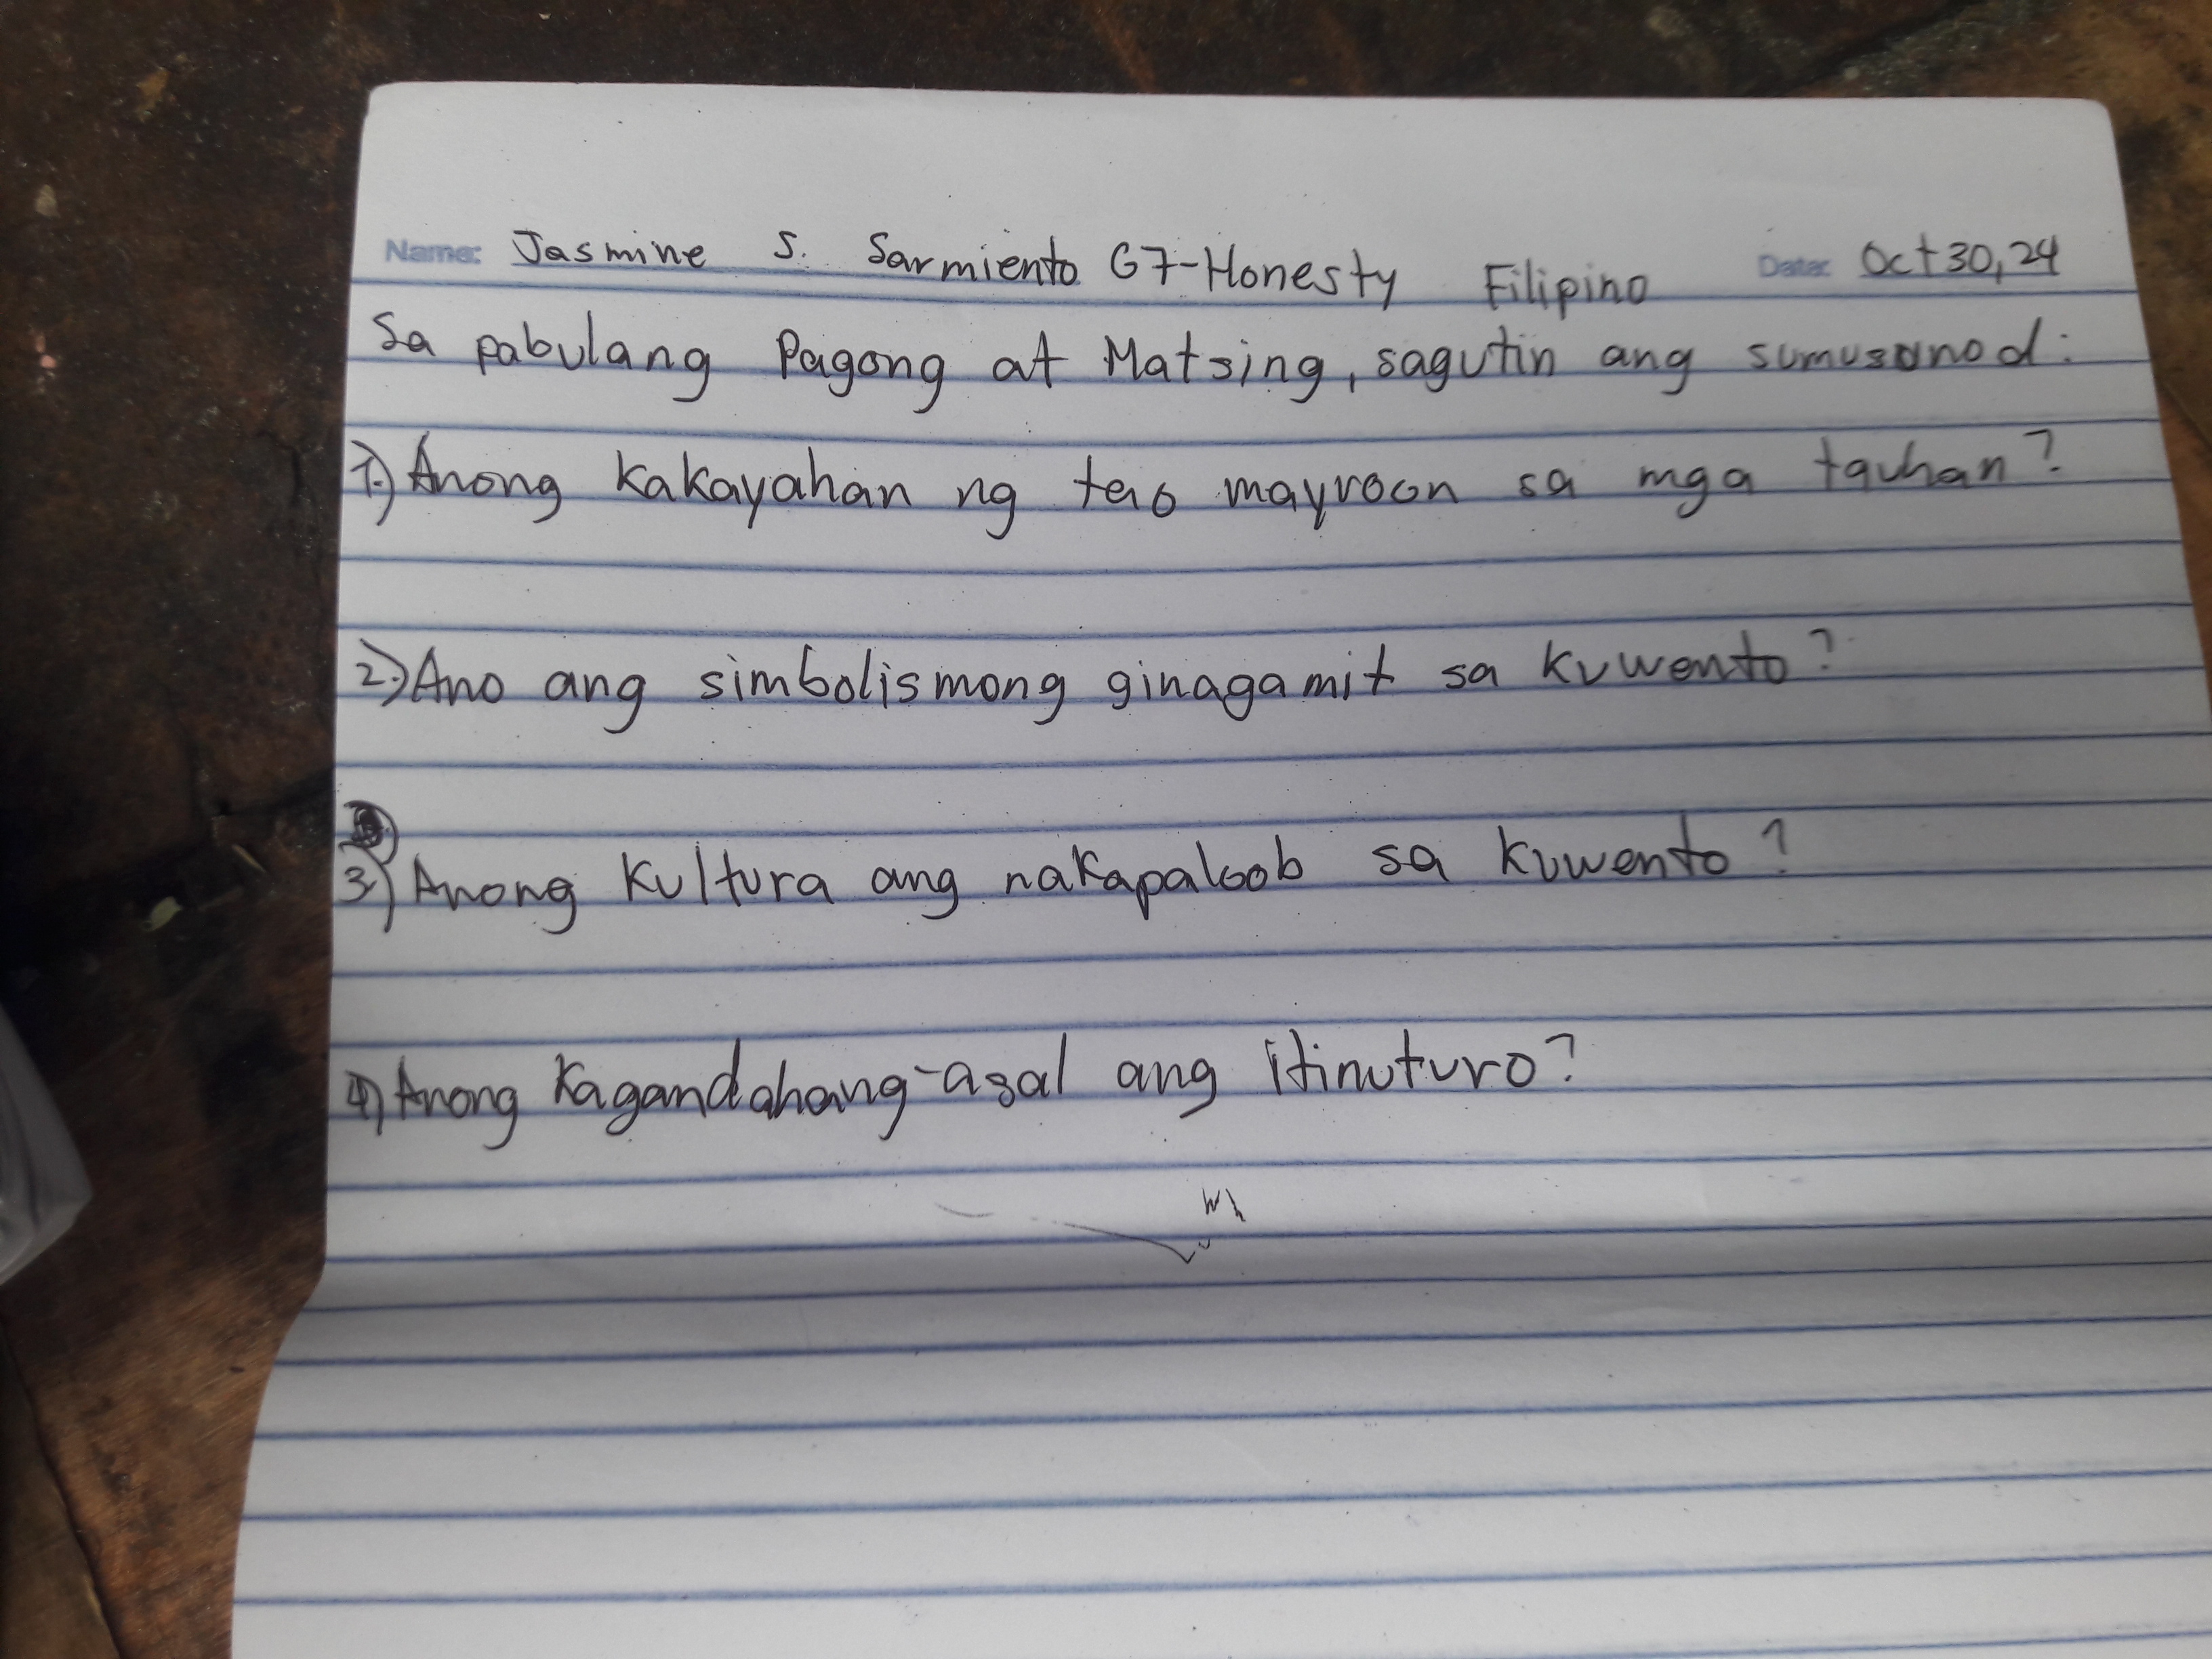 Name: Jasmine S. Sarmiento G7-Honesty Filipino Date: Oct 30, 24
Sa pabulang Pagong at Matsing, sagutin ang sumusunod:
1.) Anong kakayahan ng tao mayroon sa mga tauhan?
2.) Ano ang simbolismong ginagamit sa kuwento?
3.) Anong kultura ang nakapaloob sa kuwento?
4.) Anong kagandahang-asal ang itinuturo?